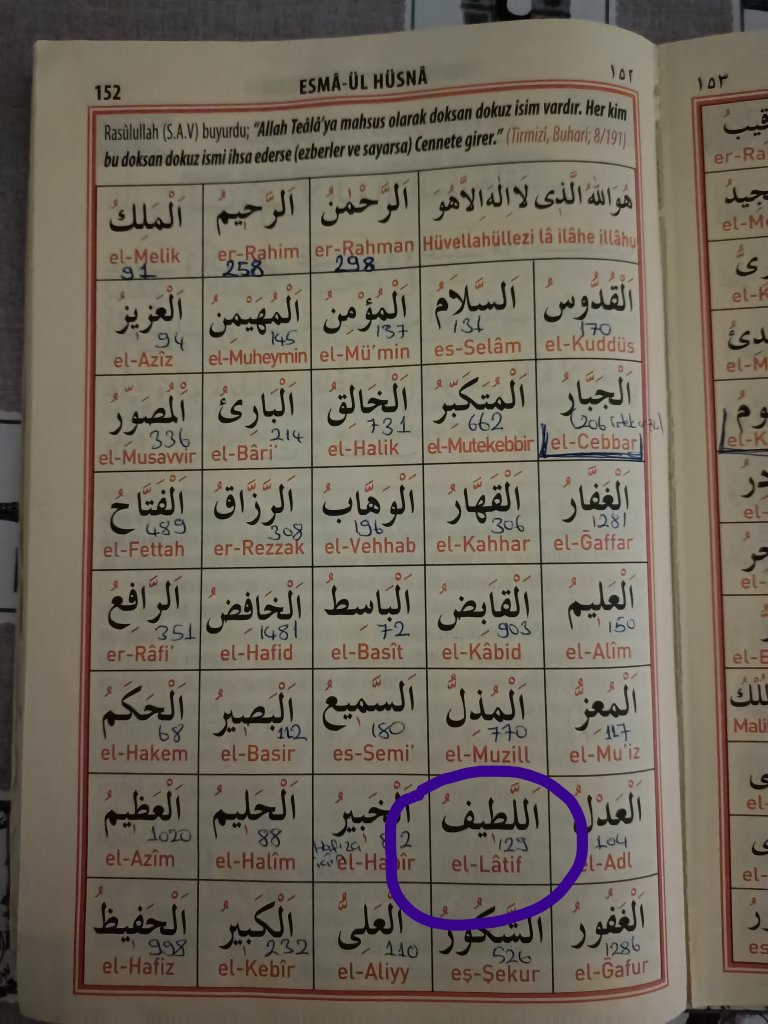 152 ESMÂ-ÜL HÜSNÂ ١٥٢
Rasûlullah (S.A.V) buyurdu; “Allah Teâlâ'ya mahsus olarak doksan dokuz isim vardır. Her kim
bu doksan dokuz ismi ihsa ederse (ezberler ve sayarsa) Cennete girer.” (Tirmizî, Buhari; 8/191)
هُوَ اللهُ الَّذِى لَا اِلٰهَ اِلَّا هُوَ اَلرَّحْمٰنُ اَلرَّحِيمُ اَلْمَلِكُ
Hüvellahüllezi lâ ilâhe illâhu er-Rahman er-Rahim el-Melik
298 258 91
اَلْقُدُّوسُ اَلسَّلَامُ اَلْمُؤْمِنُ اَلْمُهَيْمِنُ اَلْعَزِيزُ
170 131 137 145 94
el-Kuddüs es-Selâm el-Mü'min el-Muheymin el-Azîz
اَلْجَبَّارُ اَلْمُتَكَبِّرُ اَلْخَالِقُ اَلْبَارِئُ اَلْمُصَوِّرُ
(206 662 731 214 336
el-Cebbar el-Mutekebbir el-Halik el-Bâri' el-Musavvir
اَلْغَفَّارُ اَلْقَهَّارُ اَلْوَهَّابُ اَلرَّزَّاقُ اَلْفَتَّاحُ
1281 306 196 308 489
el-Ğaffar el-Kahhar el-Vehhab er-Rezzak el-Fettah
اَلْعَلِيمُ اَلْقَابِضُ اَلْبَاسِطُ اَلْخَافِضُ اَلرَّافِعُ
150 903 72 1481 351
el-Alîm el-Kâbid el-Basît el-Hafid er-Râfi'
اَلْمُعِزُّ اَلْمُذِلُّ اَلسَّمِيعُ اَلْبَصِيرُ اَلْحَكَمُ
117 770 180 112 68
el-Mu'iz el-Muzill es-Semi' el-Basir el-Hakem
اَلْعَدْلُ اَللَّطِيفُ اَلْخَبِيرُ اَلْحَلِيمُ اَلْعَظِيمُ
104 129 Hafıza için 812 88 1020
el-Adl el-Lâtif el-Habîr el-Halîm el-Azîm
اَلْغَفُورُ اَلشَّكُورُ اَلْعَلِىُّ اَلْكَبِيرُ اَلْحَفِيظُ
1286 526 110 232 998
el-Ğafur eş-Şekur el-Aliyy el-Kebîr el-Hafiz
١٥٣